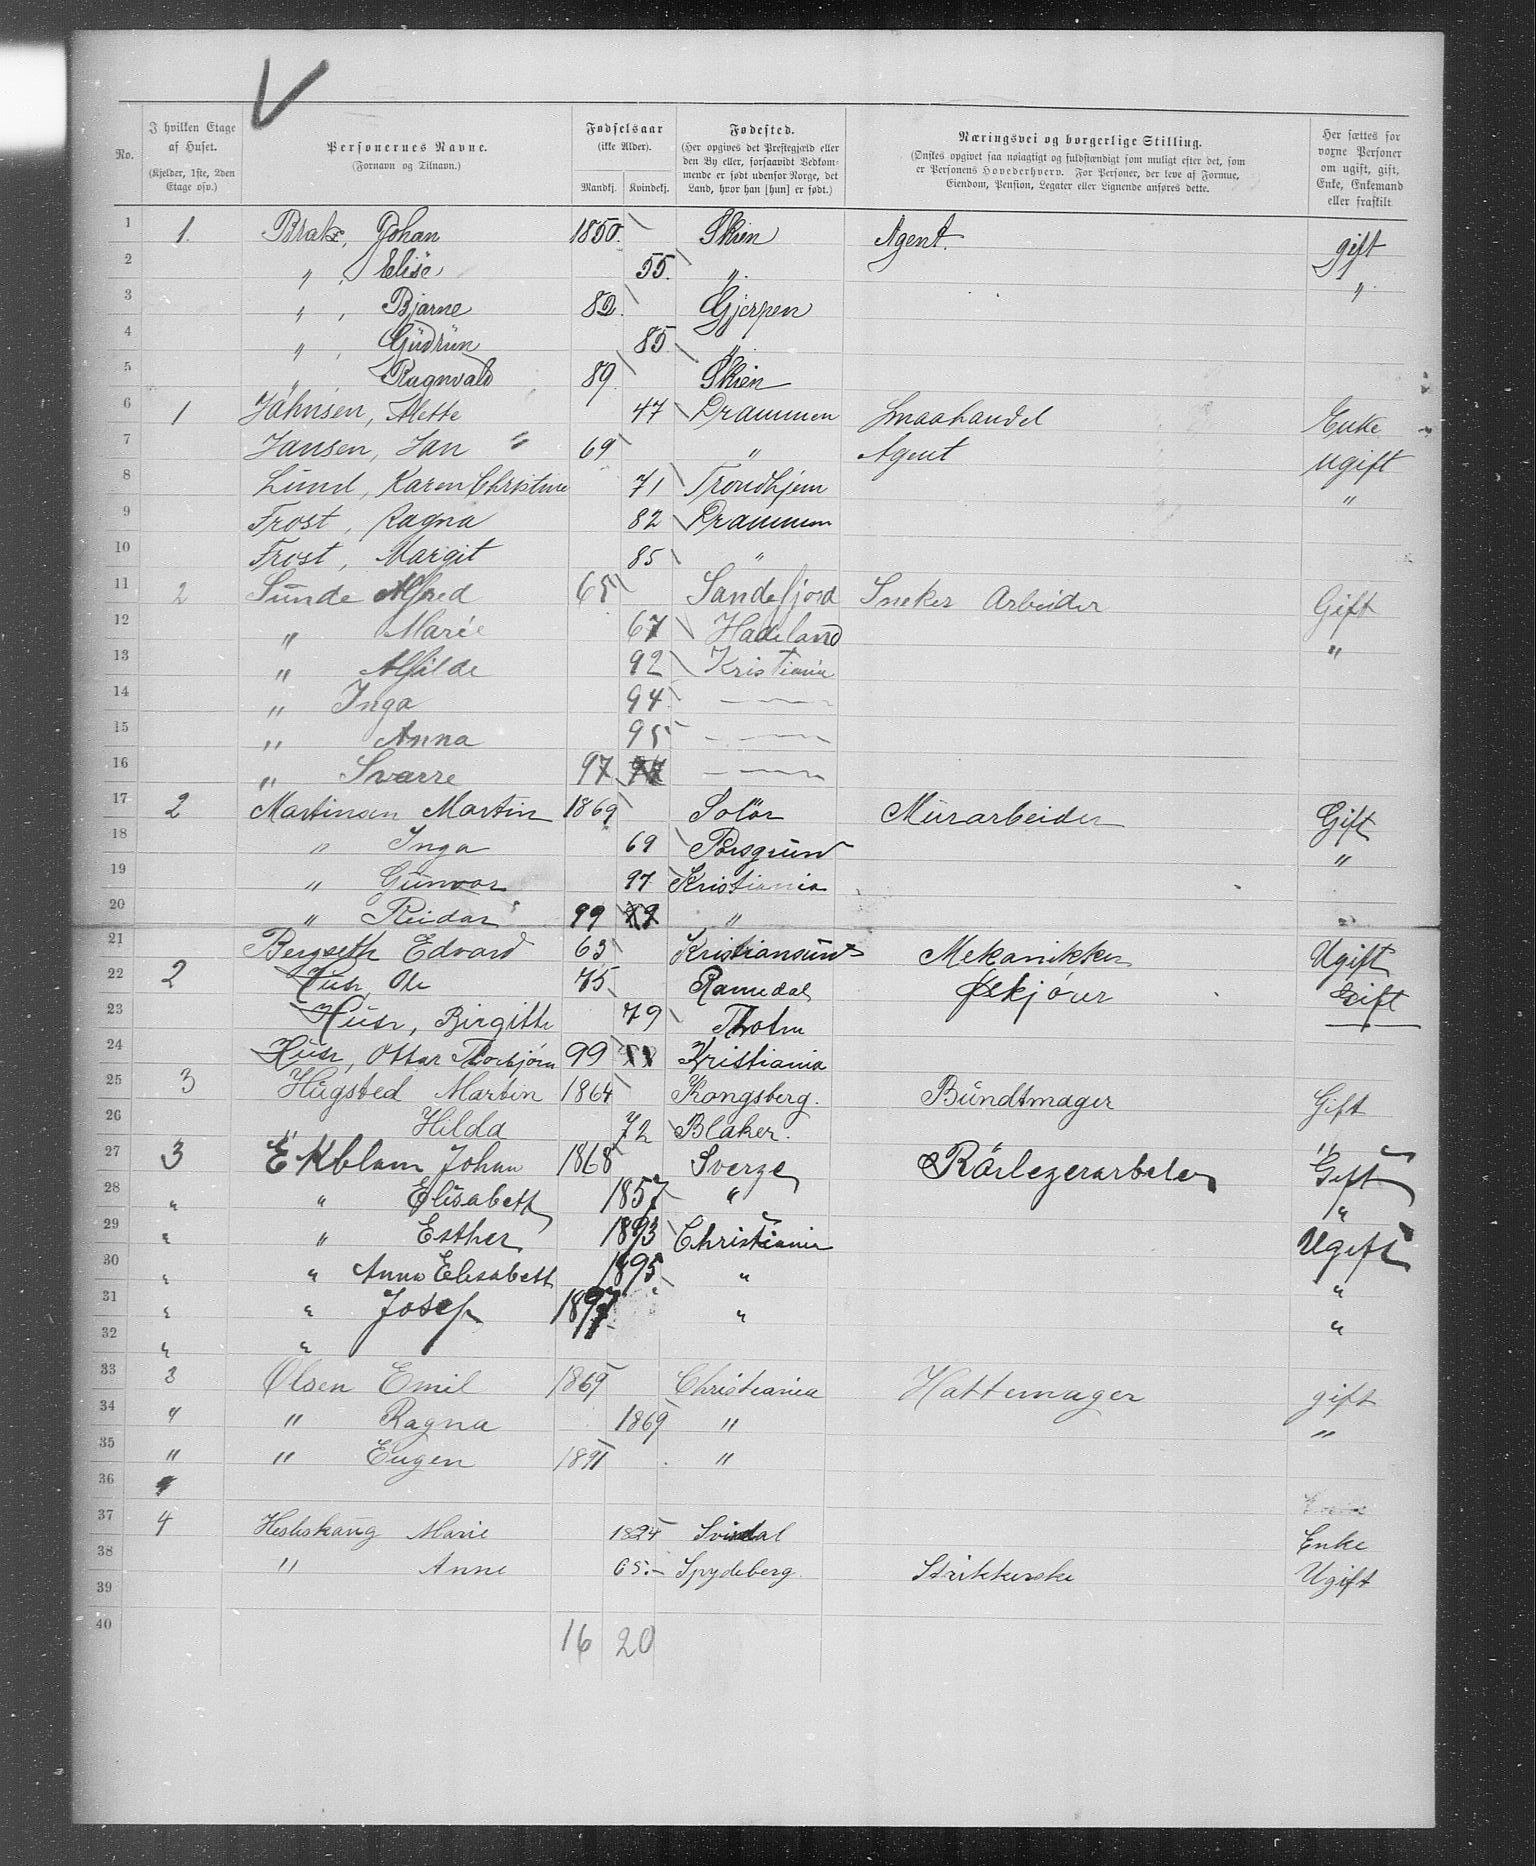 V
No.
I hvilken Etage af Huset.
(Kjelder, 1ste, 2den Etage osv.)
Personernes Navne.
(Fornavn og Tilnavn.)
Fødselsaar
(ikke Alder).
Mandkj. Kvindekj.
Fødested.
(Her opgives det Prestegjæld eller den By eller, forsaavidt Vedkommende er født udenfor Norge, det Land, hvor han [hun] er født.)
Næringsvei og borgerlige Stilling.
(Ønskes opgivet saa nøiagtigt og fuldstændigt som muligt efter det, som er Personens Hovederhverv. For Personer, der leve af Formue, Eiendom, Pension, Legater eller Lignende anføres dette.
Her sættes for voxne Personer om ugift, gift, Enke, Enkemand eller fraskilt.
1 1. Johan 1850. Skien Agent. gift
2 " , Elise 55. " "
3 " , Bjarne 82. Gjerpen
4 " , Gudrun 85 "
5 " Ragnvald 89. Skien
6 1 Jahnsen, Mette 47 Drammen Smaahandel Enke
7 Jansen, Jan 69 " Agent Ugift
8 Lund, Karen Christine 71 Trondhjem "
9 Frost, Ragna 82 Drammen
10 Frost, Margit 85 "
11 2 Sunde Alfred 65 Sandefjord Sneker Arbeider Gift
12 " Marie 67 Hadeland "
13 " Alfilde 92 Kristiania
14 " Inga 94 —
15 " Anna 95 —
16 " Svarre 97 —
17 2 Martinsen Martin 1869 Solør Murarbeider Gift
18 " Inga 69 Porsgrund "
19 " Gunvor 97 Kristiania
20 " Reidar 99 "
21 Bergseth Edvard 63 Kristiansund Mekanikker Ugift
22 2 Ole 75 Ramedal Ølkjører Gift
23 Birgitte 79 Tholm
24 Ottar Thorbjørn 99 Kristiania
25 3 Hugsted Martin 1864 Kongsberg. Bundtmager Gift
26 " Hilda 72 Blaker. "
27 3 Ekblom Johan 1868 Sverge Rörlegerarbeter Gift
28 " " Elisabeth 1857 " "
29 " " Esther 1893 Christiania Ugift
30 " " Anna Elisabeth 1895 " "
31 " " Josef 1897 " "
32 " "
33 3 Olsen Emil 1869 Christiania Hattemager gift
34 " " Ragna 1869 " "
35 " " Eugen 1891 "
36
37 4 Marie 1824 Enke
38 " Anne 65. Spydeberg. Strikkerske Ugift
39
40
16 20